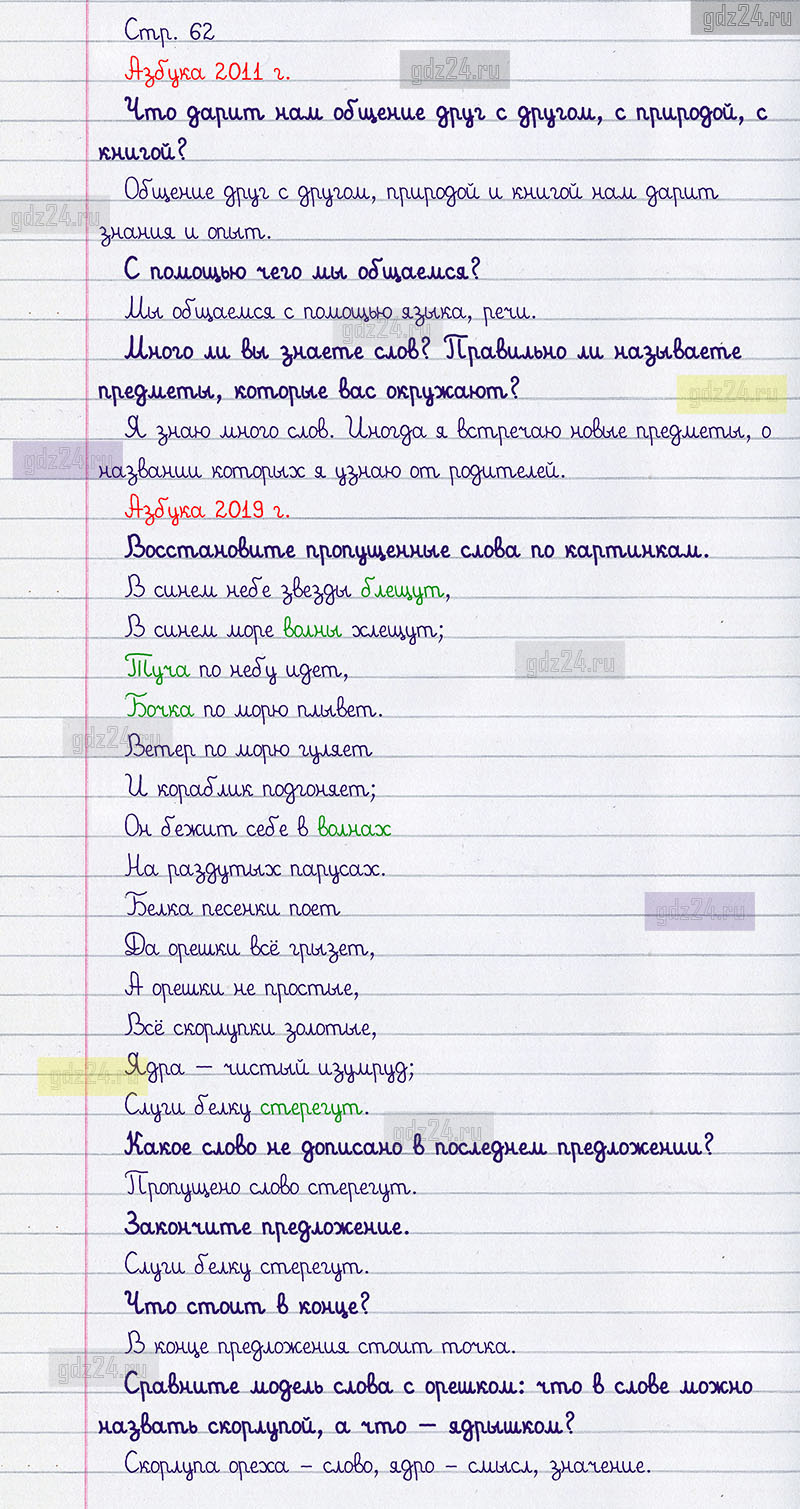 gdz24.ru
Стр. 62
Азбука 2011 г.
gdz24.ru
Что дарит нам общение друг с другом, с природой, с
книгой?
Общение друг с другом, природой и книгой нам дарит
gdz24.ru
знания и опыт.
С помощью чего мы общаемся?
Мы общаемся с помощью языка, речи.
gdz24.ru
Много ли вы знаете слов? Правильно ли называете
предметы, которые вас окружают?
gdz24.ru
Я знаю много слов. Иногда я встречаю новые предметы, о
gdz24.ru
названии которых я узнаю от родителей.
Азбука 2019 г.
Восстановите пропущенные слова по картинкам.
В синем небе звезды блещут,
В синем море волны хлещут;
gdz24.ru
Туча по небу идет,
Бочка по морю плывет.
gdz24.ru
Ветер по морю гуляет
И кораблик подгоняет;
Он бежит себе в волнах
На раздутых парусах.
Белка песенки поет
gdz24.ru
Да орешки всё грызет,
А орешки не простые,
Всё скорлупки золотые,
Ядра – чистый изумруд;
gdz24.ru
Слуги белку стерегут.
gdz24.ru
Какое слово не дописано в последнем предложении?
Пропущено слово стерегут.
Закончите предложение.
Слуги белку стерегут.
Что стоит в конце?
В конце предложения стоит точка.
gdz24.ru
Сравните модель слова с орешком: что в слове можно
назвать скорлупой, а что – ядрышком?
Скорлупа ореха – слово, ядро – смысл, значение.